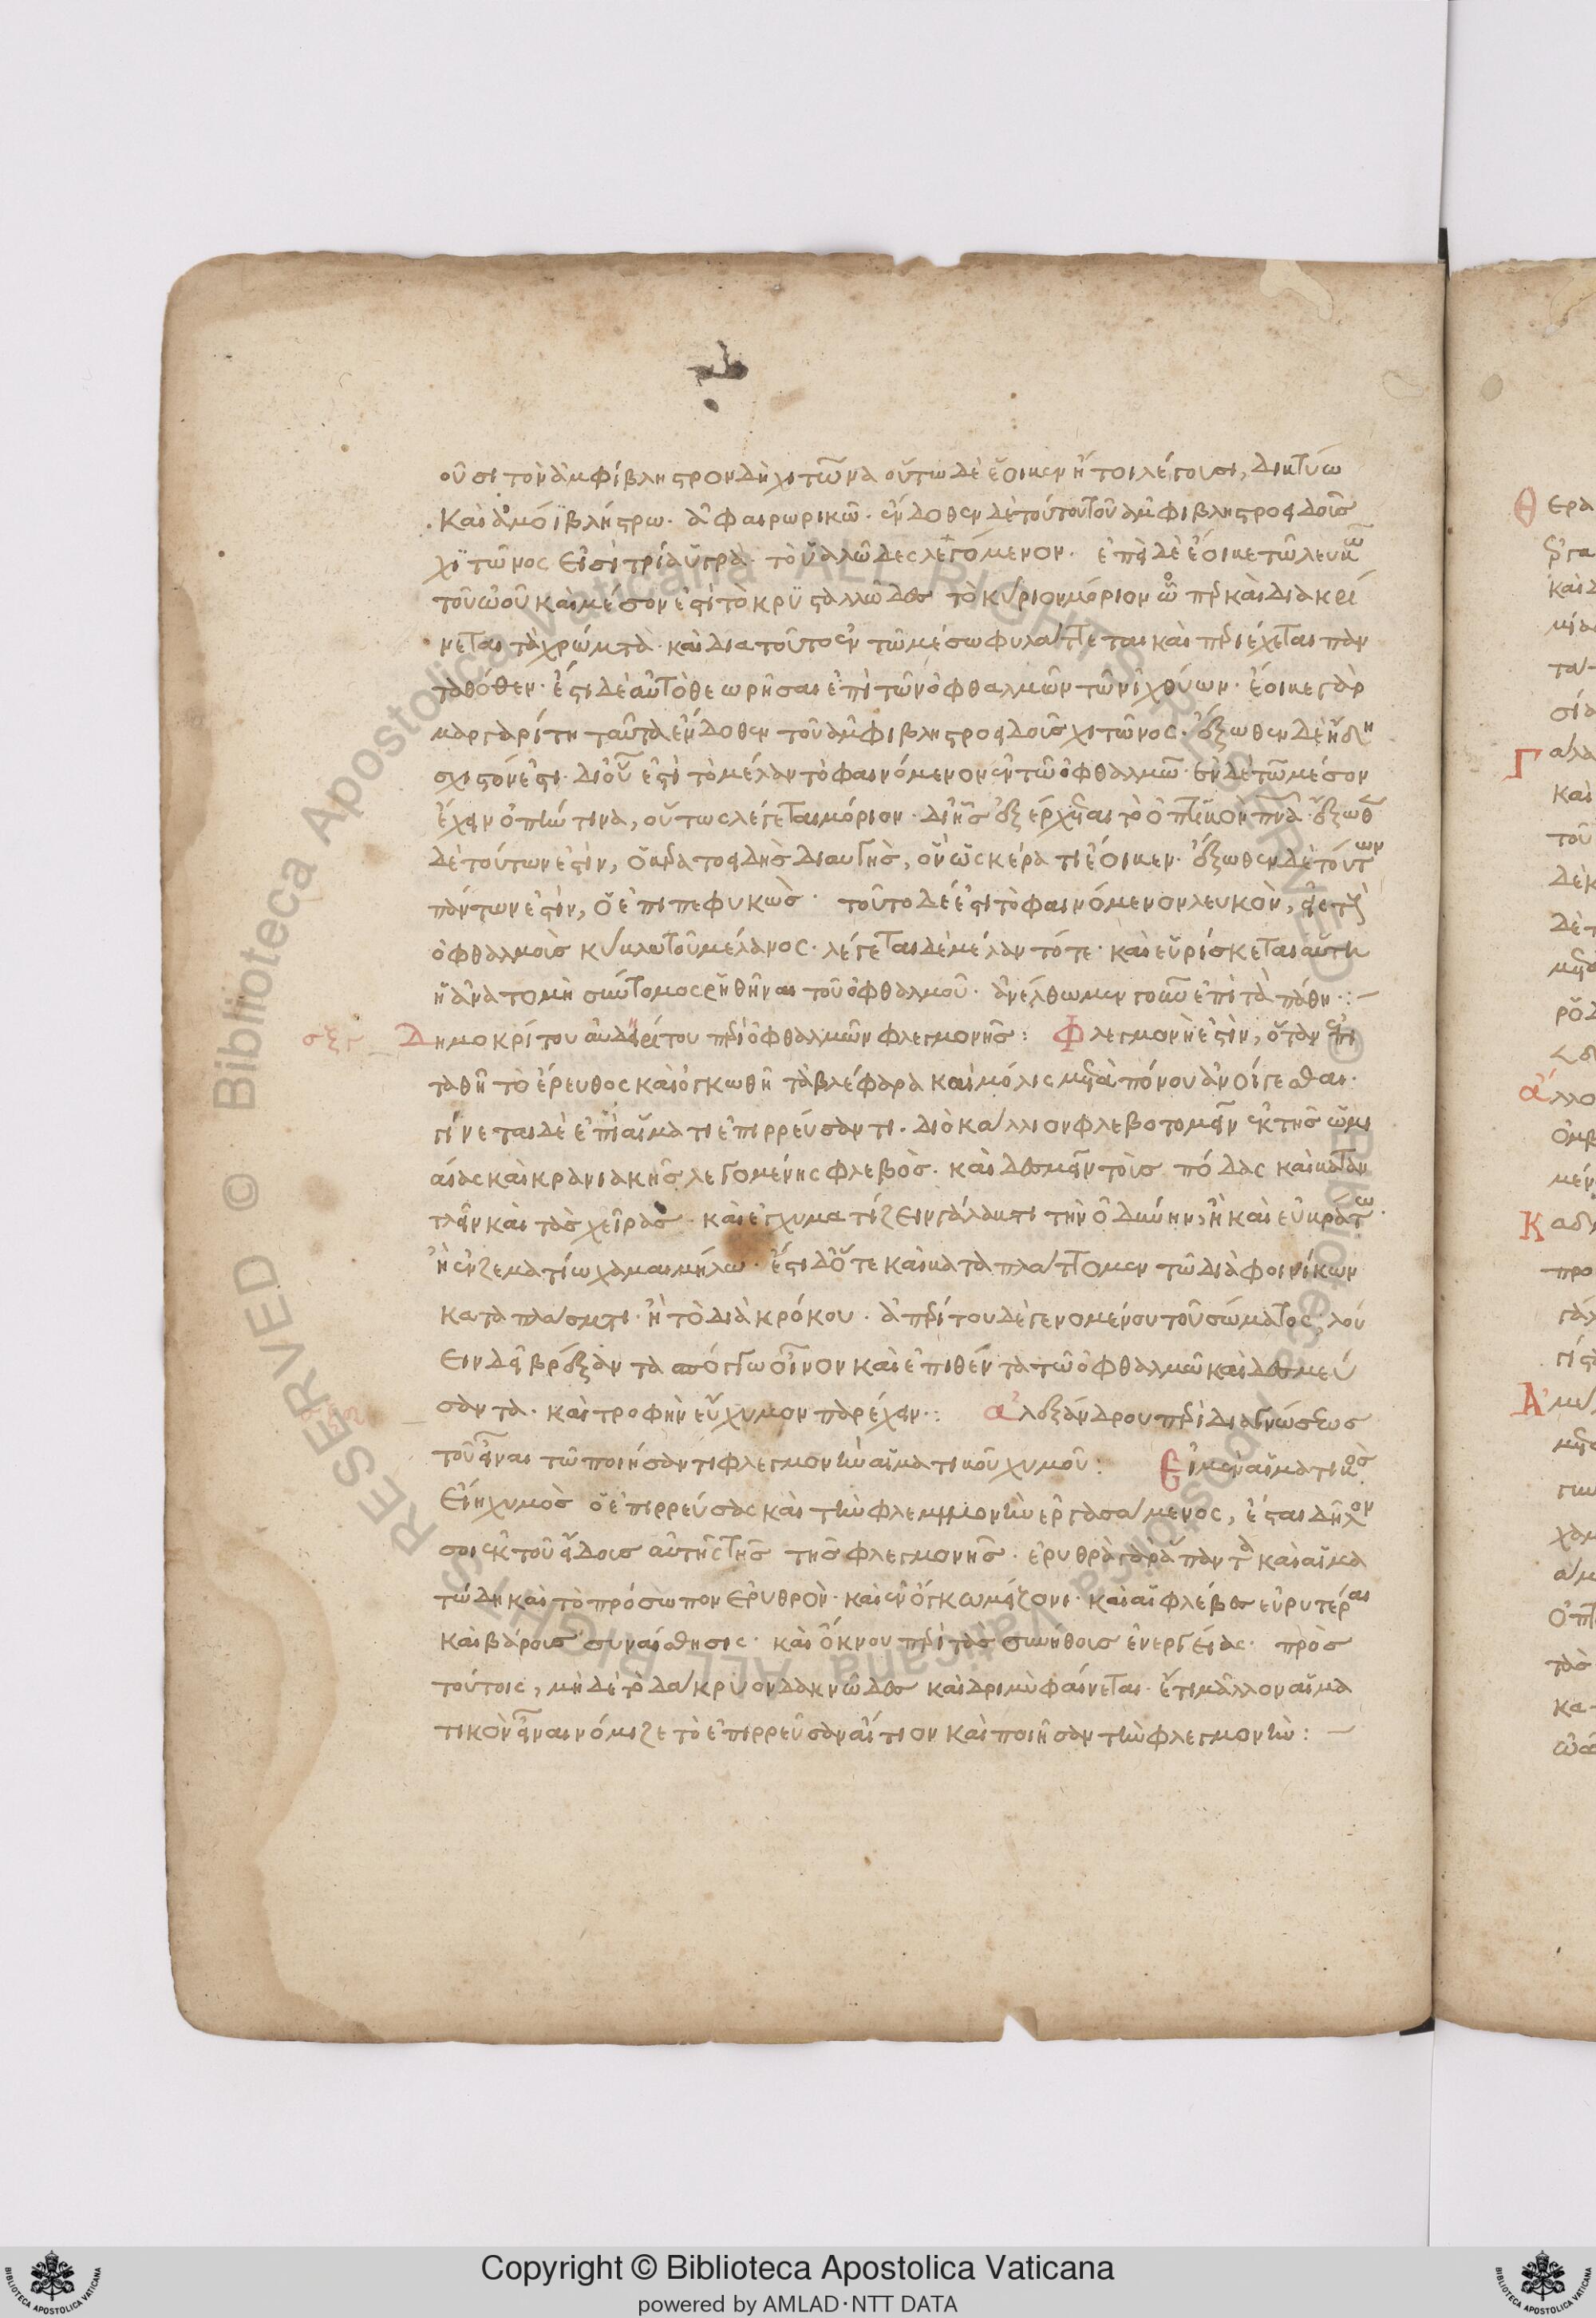 οῦσι τὸν ἀμφίβληστρονδη χιτῶνα οὕτω δὲ ἔοικεν ἤτοι λέγουσι, δικτύω
καὶ ἀμοϊβλήστρω. ἀφαιρωρικῶ. ἔνδοθεν δὲ τούτου τοῦ ἀμφιβληστροειδοῦς
χϊτῶνος εἰσὶ τρία ὑγρὰ. τὸ ὑαλῶδες λεγόμενον. ἐπεὶ δὲ ἔοικε τῶ λευκῶ
τοῦ ὠοῦ καὶ μέσον ἐστὶ τὸ κρϋσταλλῶδες τὸ κύριον μόριον ὧ περ καὶ διακρί
νεται τὰ χρώματα. καὶ δια τοῦτο ἐν τῶ μέσω φυλάττεται καὶ περιέχεται παν
ταθόθεν. ἔστι δὲ αὐτὸ θεωρῆσαι ἐπὶ τῶν ὀφθαλμῶν τῶν ἰχθύων. ἔοικε γὰρ
μαργαρίτη ταῦτα ἔνδοθεν τοῦ ἀμφιβληστροειδοῦς χιτῶνος. ἔξωθεν δὲ
σχιστόν ἐστι. δι οὗ ἐστὶ τὸ μέλαν τὸ φαινόμενον ἐν τῶ ὀφθαλμῶ. ἐν δὲ τῶ μέσον
ἔχειν ὀπήν τινα, οὕτως λέγεται μόριον. δι ἧς ἐξέρχεται τὸ ὀπτικὸν πνα ἔξωθεν
δὲ τούτων ἐστὶν, ὁ κερατοειδὴς διαυγὴς, ὃν ὡς κέρατι ἔοικεν. ἔξωθεν δὲ τούτων
πάντων ἐστὶν, ὁ ἐπιπεφυκὼς. τοῦτο δέ ἐστι τὸ φαινόμενον λευκὸν, ἐν τοῖς
ὀφθαλμοῖς κύκλω τοῦ μέλανος. λέγεται δὲ μέλαν τότε. καὶ εὑρίσκεται αὕτη
ἡ ἀνατομὴ συντομος ῥηθῆναι τοῦ ὀφθαλμοῦ. ἀνέλθωμεν γοῦν ἐπὶ τὰ πάθη.:—
Δημοκρίτου ἀβδηρίτου περὶ ὀφθαλμῶν φλεγμονῆς: Φλεγμονὴ ἐστὶν, ὅταν ἐπι
ταθῆ τὸ ἔρευθος καὶ ὀγκωθῆ τὰ βλέφαρα καὶ μόλις μετὰ πόνου ἀνοίγεσθαι.
γίνεται δὲ ἐπὶ αἵματι ἐπιρρεύσαντι. διὸ κάλλιον φλεβοτομεῖν ἐκ τῆς ὠμι
αίας καὶ κρανιακῆς λεγομένης φλεβὸς. καὶ δεσμεῖν τοὺς πόδας καὶ καταν
τλεῖν καὶ τὰς χεῖρας. καὶ ἐγχυματίζειν γάλακτι τὴν ὀδύνην, ἢ καὶ εὐκράτω.
ἢ ἐν ζεματίω χαμαιμήλω. ἔστι δ ὅτε καὶ καταπλάττομεν τῶ διὰ φοινίκων
καταπλάσματι. ἢ τὸ διὰ κρόκου. ἀπερίτου δὲ γενομένου τοῦ σώματος, λού
ειν δεῖ βρέξαντα σπόγγω οἶνον καὶ ἐπιθέντα τῶ ὀφθαλμῶ καὶ δεσμεύ
σαντα. καὶ τροφὴν εὔχυμον παρέχειν.: ἀλεξάνδρου περὶ διαγνώσεως
τοῦ εἶναι τῶ ποιήσαντι φλεγμονὴν αἱματικοῦ χυμοῦ: Εἰ μὲν αἱματικὸς
εἴη χυμὸς ὁ ἐπιρρεύσας καὶ τὴν φλεγμμονὴν ἐργασάμενος, ἔσται δῆλον
σοι ἐκ τοῦ εἴδους αὐτῆς τῆς τῆς φλεγμονῆς. ἐρυθρὰ γὰρ ἅπαντα καὶ αἱμα
τώδη καὶ τὸ πρόσωπον ἐρυθρὸν. καὶ ἐν ὄγκω μείζονι. καὶ αἱ φλέβες εὐρυτέραι
καὶ βάρους συναίσθησις. καὶ ὄκνου περὶ τὰς συνηθους ἐνεργείας. πρὸς
τούτοις, μὴ δὲ τὸ δάκρυον δακνῶδες καὶ δριμὺ φαίνεται. ἔτι μᾶλλον αἱμα
τικὸν εἶναι νόμιζε τὸ ἐπιρρεῦσαν αἴτιον καὶ ποιῆσαν τὴν φλεγμονὴν: —
Copyright © Biblioteca Apostolica Vaticana
powered by AMLAD·NTT DATA